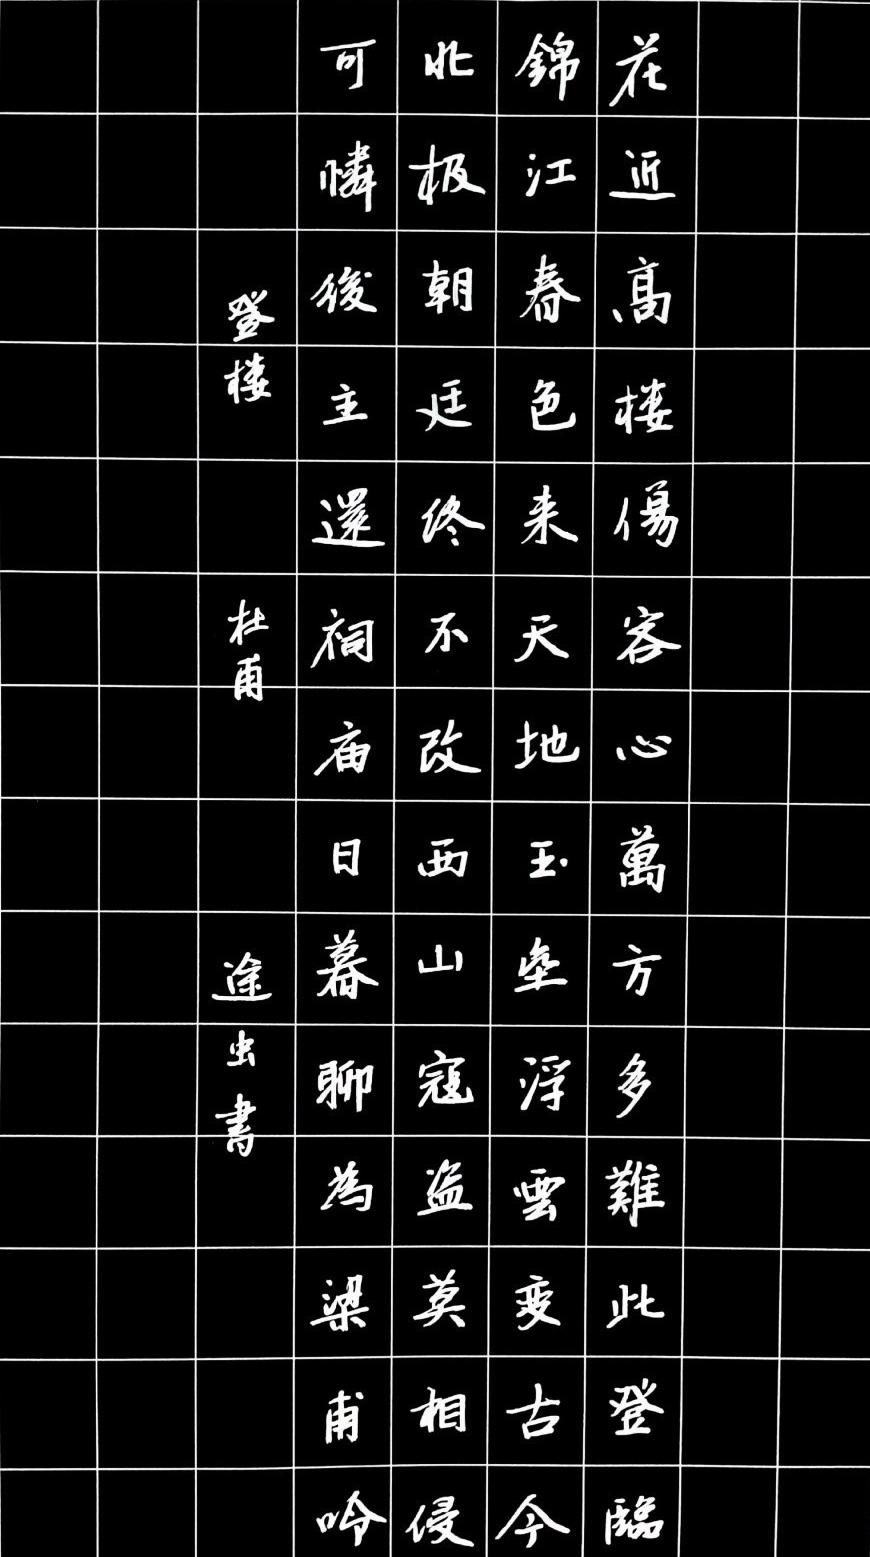 花近高楼傷客心萬方多難此登臨
錦江春色来天地玉垒浮雲变古今
北极朝廷终不改西山寇盗莫相侵
可憐後主還祠庙日暮聊為梁甫吟
登楼 杜甫 途虫書